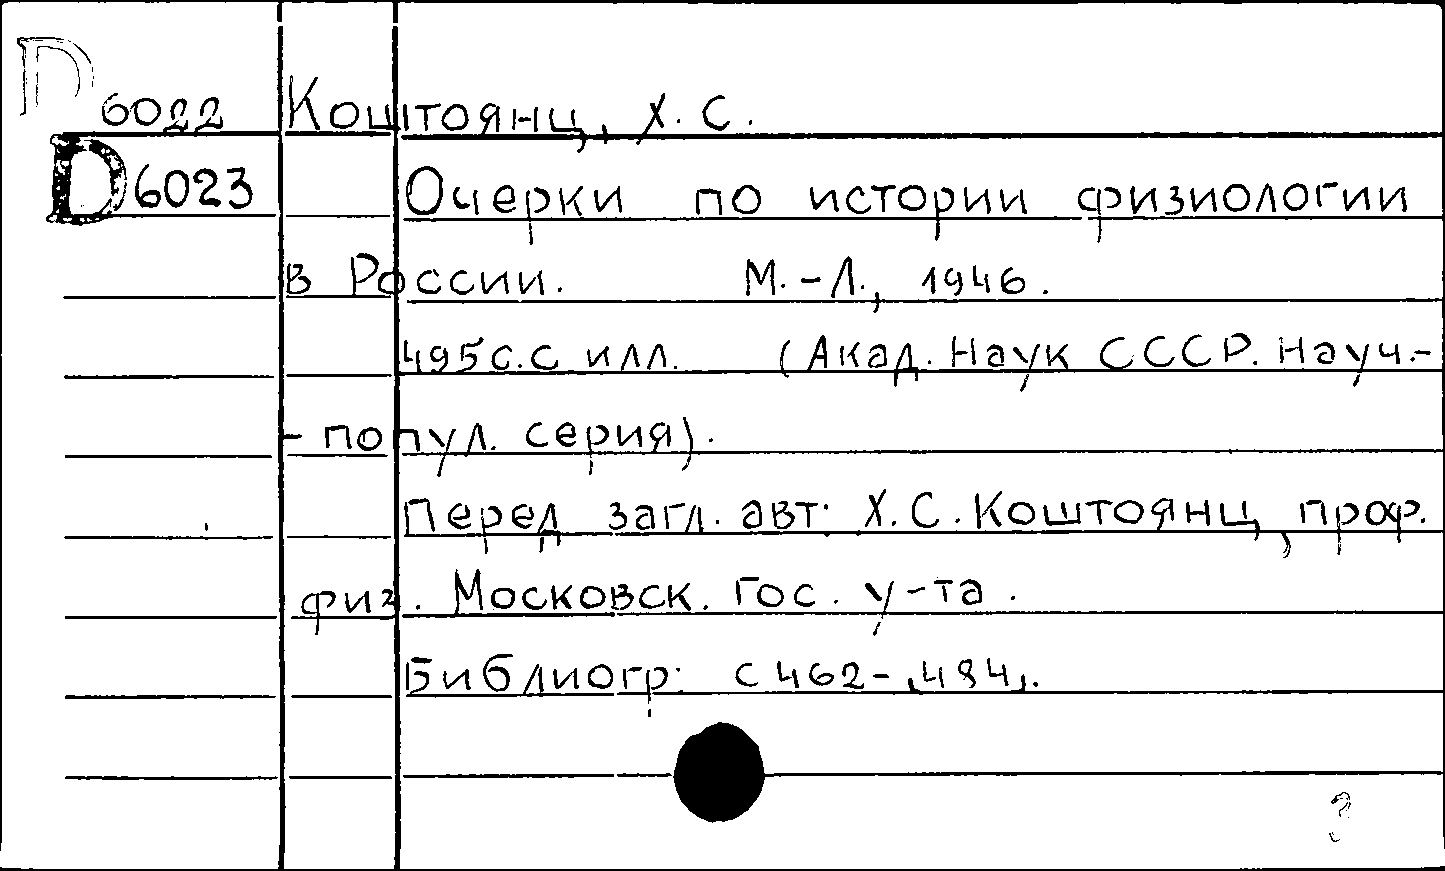 D 6022 Коштоянц, Х. С.
D 6023 Очерки по истории физиологии
в России. М.-Л., 1946.
495 с. с илл. (Акад. Наук СССР. Науч.-
- попул. серия).
Перед загл. авт: Х. С. Коштоянц, проф.
физ. Московск. Гос. у-та.
Библиогр: с 462-484.
?